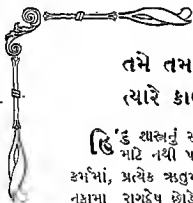 તમે તમ
ત્યારે કા
હિંદુ શાસ્ત્રનું સ
માટે નથી પ
કર્મમાં, પ્રત્યેક
નકામા રાગદ્વેષ છોડ